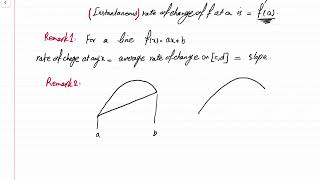 (Instantaneous) rate of change of f at a is = f'(a).
Remark 1. For a line f(x) = ax+b
rate of chage at any x = average rate of change on [c,d] = slope.
Remark 2.
a b